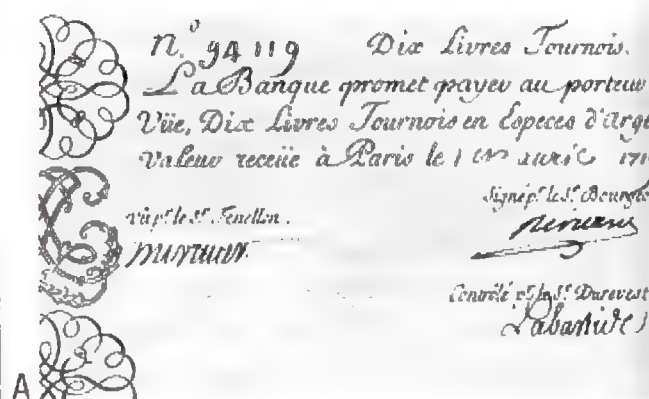 N.º 94119 Dix Livres Tournois.
La Banque promet payer au porteur
Vüe, Dix Livres Tournois en Especes d'Arge
Valeur receüe à Paris le 1er avril 171
Signé p.r le S.r Bourgeo
vû p.r le S.r Fenellon.
Contrôlé p.r le S.r Durevest
Labastide
A